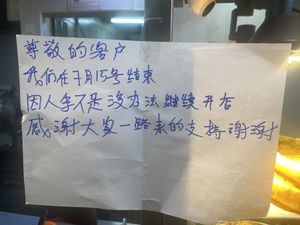 尊敬的客户
我们在7月15号结束
因人手不足没办法继续开店
感谢大家一路来的支持谢谢